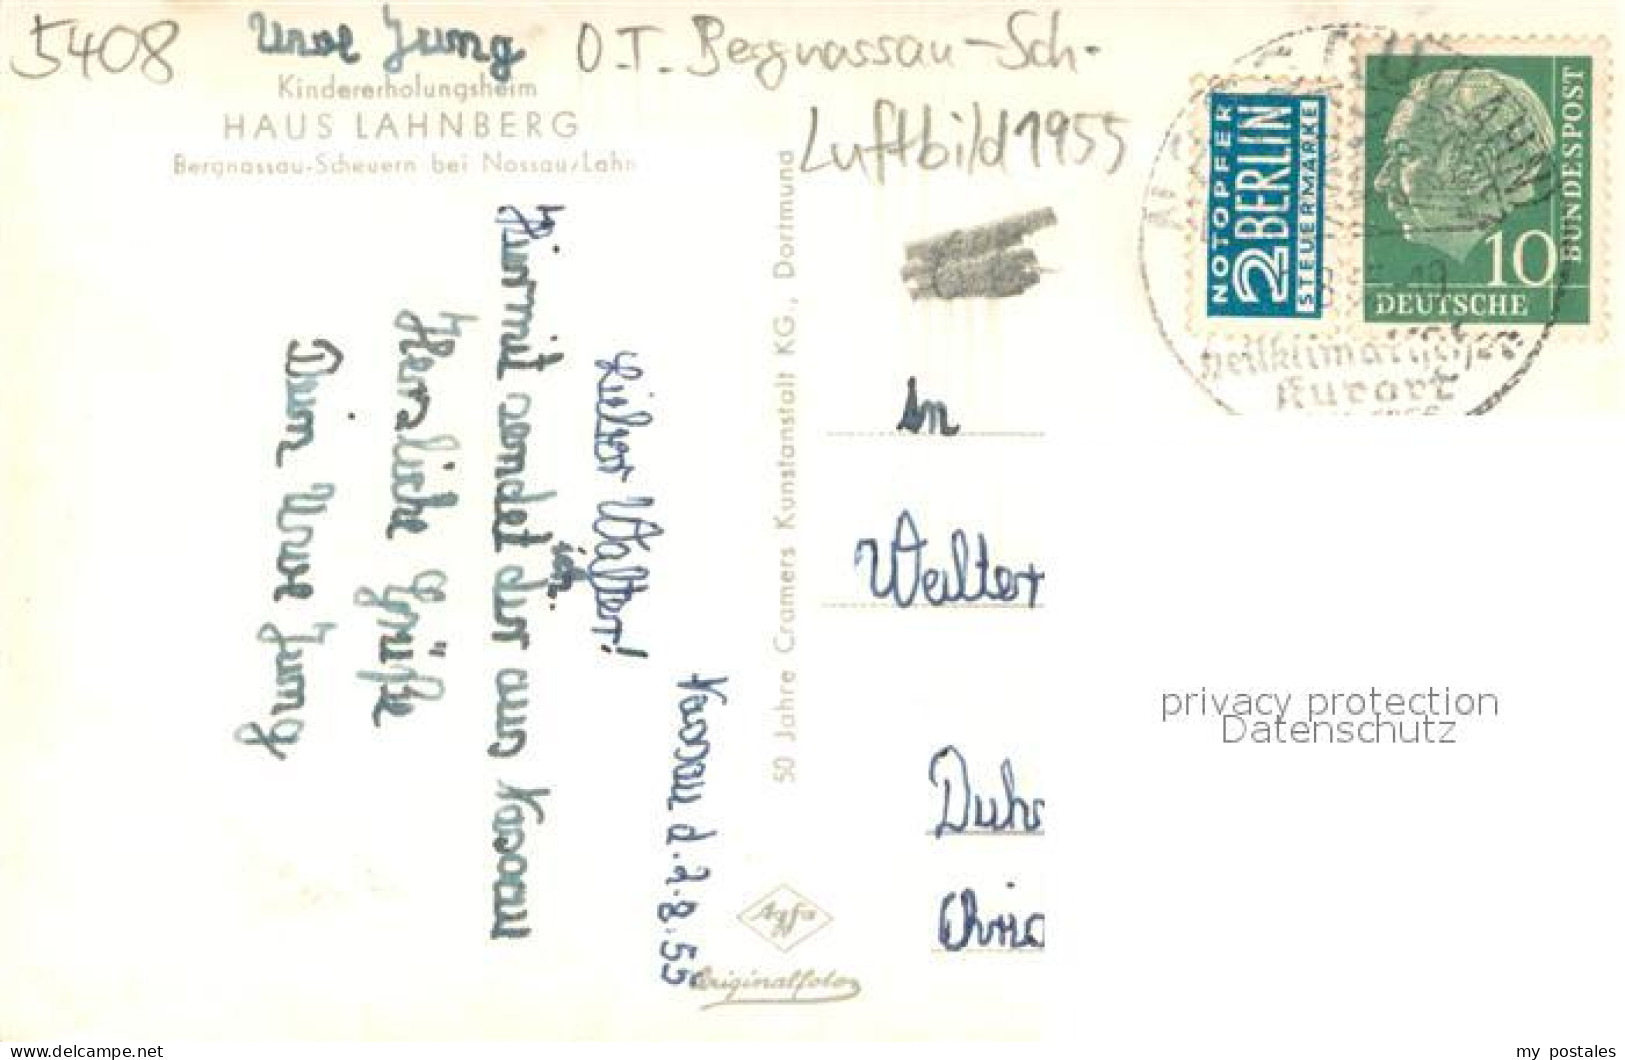 5408 Uwe Jung O.T. Bergnassau-Sch-
Luftbild 1955
Kindererholungsheim
HAUS LAHNBERG
Bergnassau-Scheuern bei Nassau/Lahn
Nassau d. 2.8.55
Lieber Walter!
Hiermit sendet dir aus Nassau
Herzliche Grüße
Dein Uwe Jung
50 Jahre Cramers Kunstanstalt KG., Dortmund
Agfa
Originalfoto
NOTOPFER
2 BERLIN
STEUERMARKE
10
DEUTSCHE
BUNDESPOST
heilklimatischer
Kurort
An
Walter
Duhr
Chric
privacy protection
Datenschutz
www.delcampe.net
my_postales